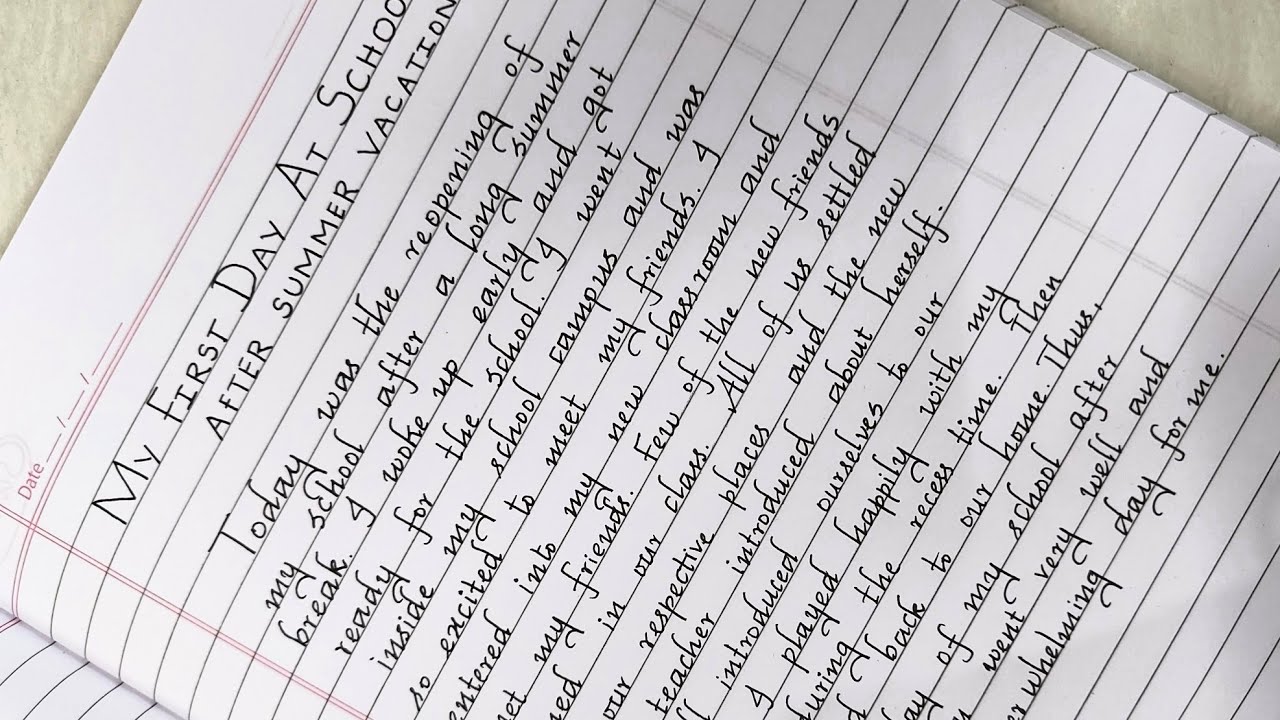 Date
MY FIRST DAY AT SCHOO
AFTER SUMMER VACATION
Today was the reopening of
my school after a long summer
break. I woke up early and got
ready for the school. I went
inside my school campus and was
so excited to meet my friends. I
entered into my new classroom and
my friends. Few of the new friends
in our class. All of us settled
our respective places and the new
teacher introduced about herself.
introduced ourselves to our
I played happily with my
during the recess time. Then
back to our home. Thus,
of my school after
went very well and
whelming day for me.